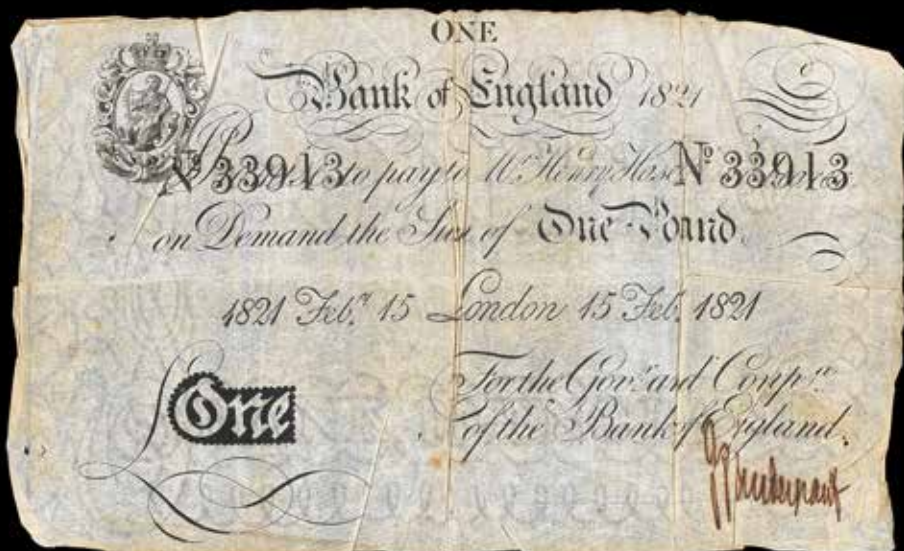 ONE
Bank of England 1821
Nº 33913 to pay to Mr. Henry Hase Nº 33913
on Demand the Sum of One Pound
1821 Feb.y 15 London 15 Feb. 1821
£One For the Gov.r and Comp.a
of the Bank of England.